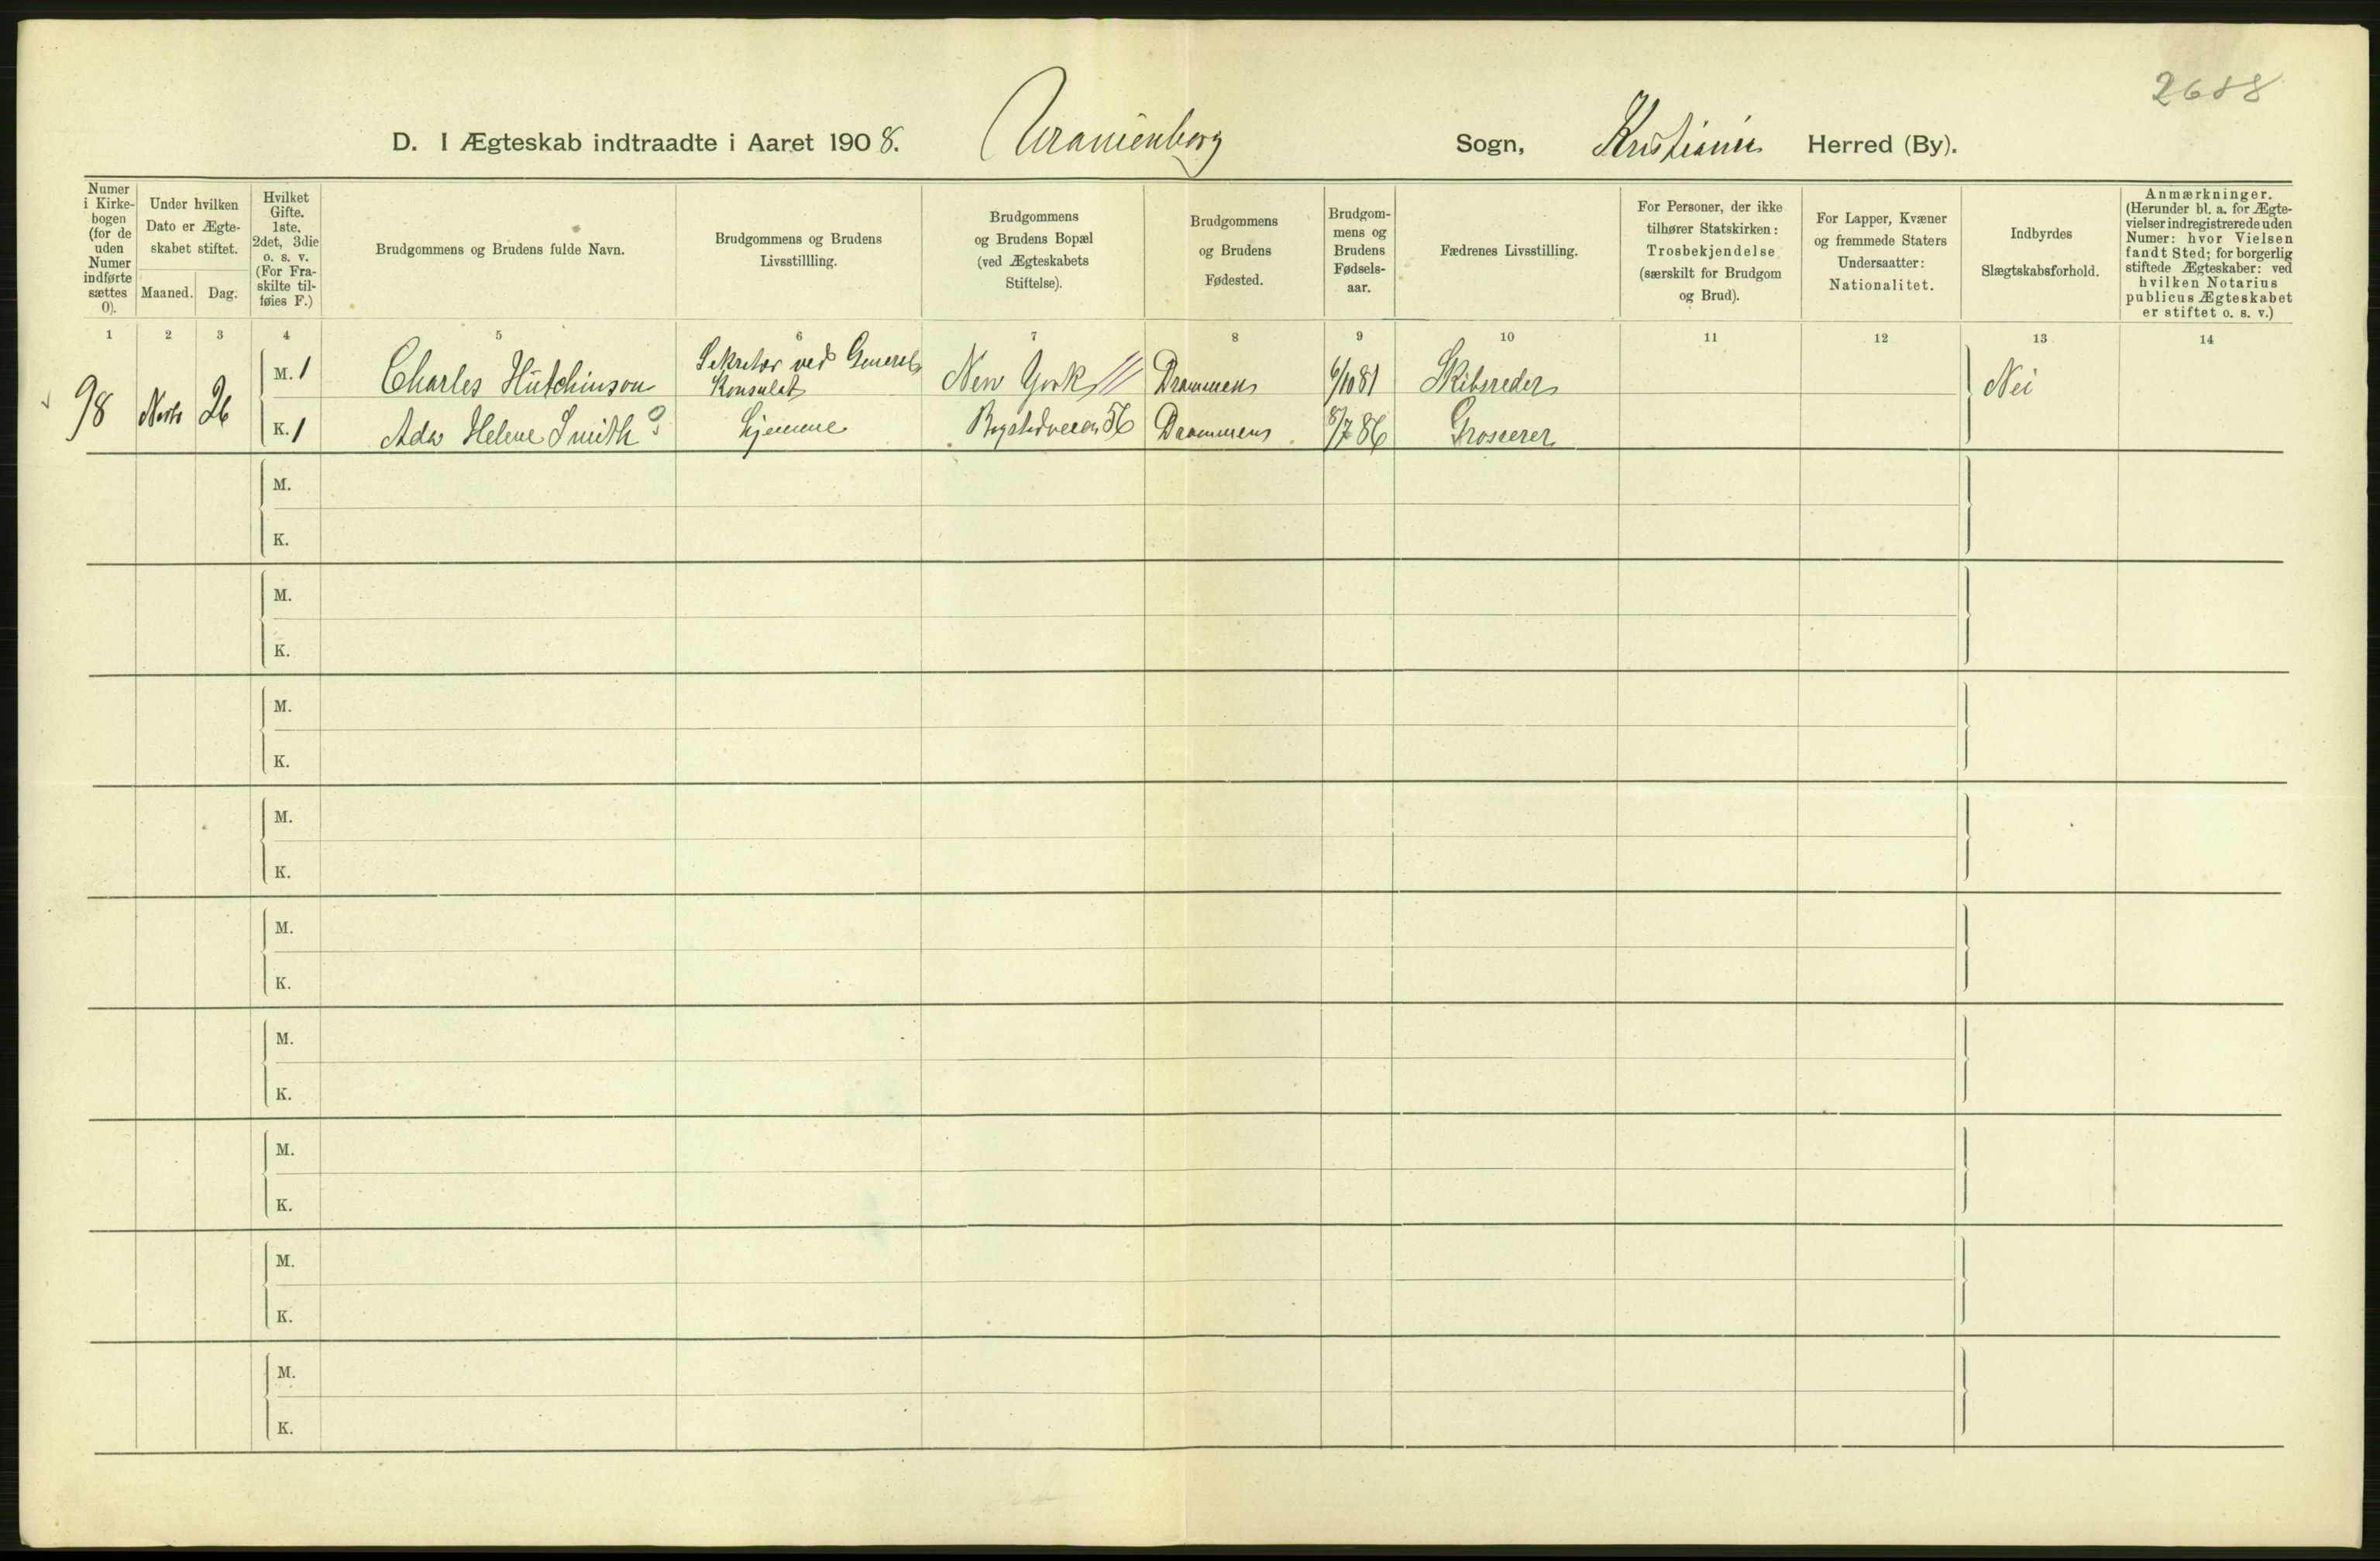 2688
D. I Ægteskab indtraadte i Aaret 1908. Uranienborg Sogn, Kristiania Herred (By).
Numer
i Kirke-
bogen
(for de
uden
Numer
indførte
sættes
0).
Under hvilken
Dato er Ægte-
skabet stiftet.
Maaned. Dag.
Hvilket
Gifte.
1ste.
2det, 3die
o. s. v.
(For Fra-
skilte til-
føies F.)
Brudgommens og Brudens fulde Navn.
Brudgommens og Brudens
Livsstillling.
Brudgommens
og Brudens Bopæl
(ved Ægteskabets
Stiftelse).
Brudgommens
og Brudens
Fødested.
Brudgom-
mens og
Brudens
Fødsels-
aar.
Fædrenes Livsstilling.
For Personer, der ikke
tilhører Statskirken:
Trosbekjendelse
(særskilt for Brudgom
og Brud).
For Lapper, Kvæner
og fremmede Staters
Undersaatter:
Nationalitet.
Indbyrdes
Slægtskabsforhold.
Anmærkninger.
(Herunder bl. a. for Ægte-
vielser indregistrerede uden
Numer: hvor Vielsen
fandt Sted; for borgerlig
stiftede Ægteskaber: ved
hvilken Notarius
publicus Ægteskabet
er stiftet o. s. v.)
1 2 3 4 5 6 7 8 9 10 11 12 13 14
98 26
M. 1 Charles Hutchinson Sekretær ved General
Konsulat New York Drammen 6/10 81 Skibsreder Nei
K. 1 Ada Helene Smith Hjemme 56 Drammen 8/7 86 Grosserer
M.
K.
M.
K.
M.
K.
M.
K.
M.
K.
M.
K.
M.
K.
M.
K.
M.
K.